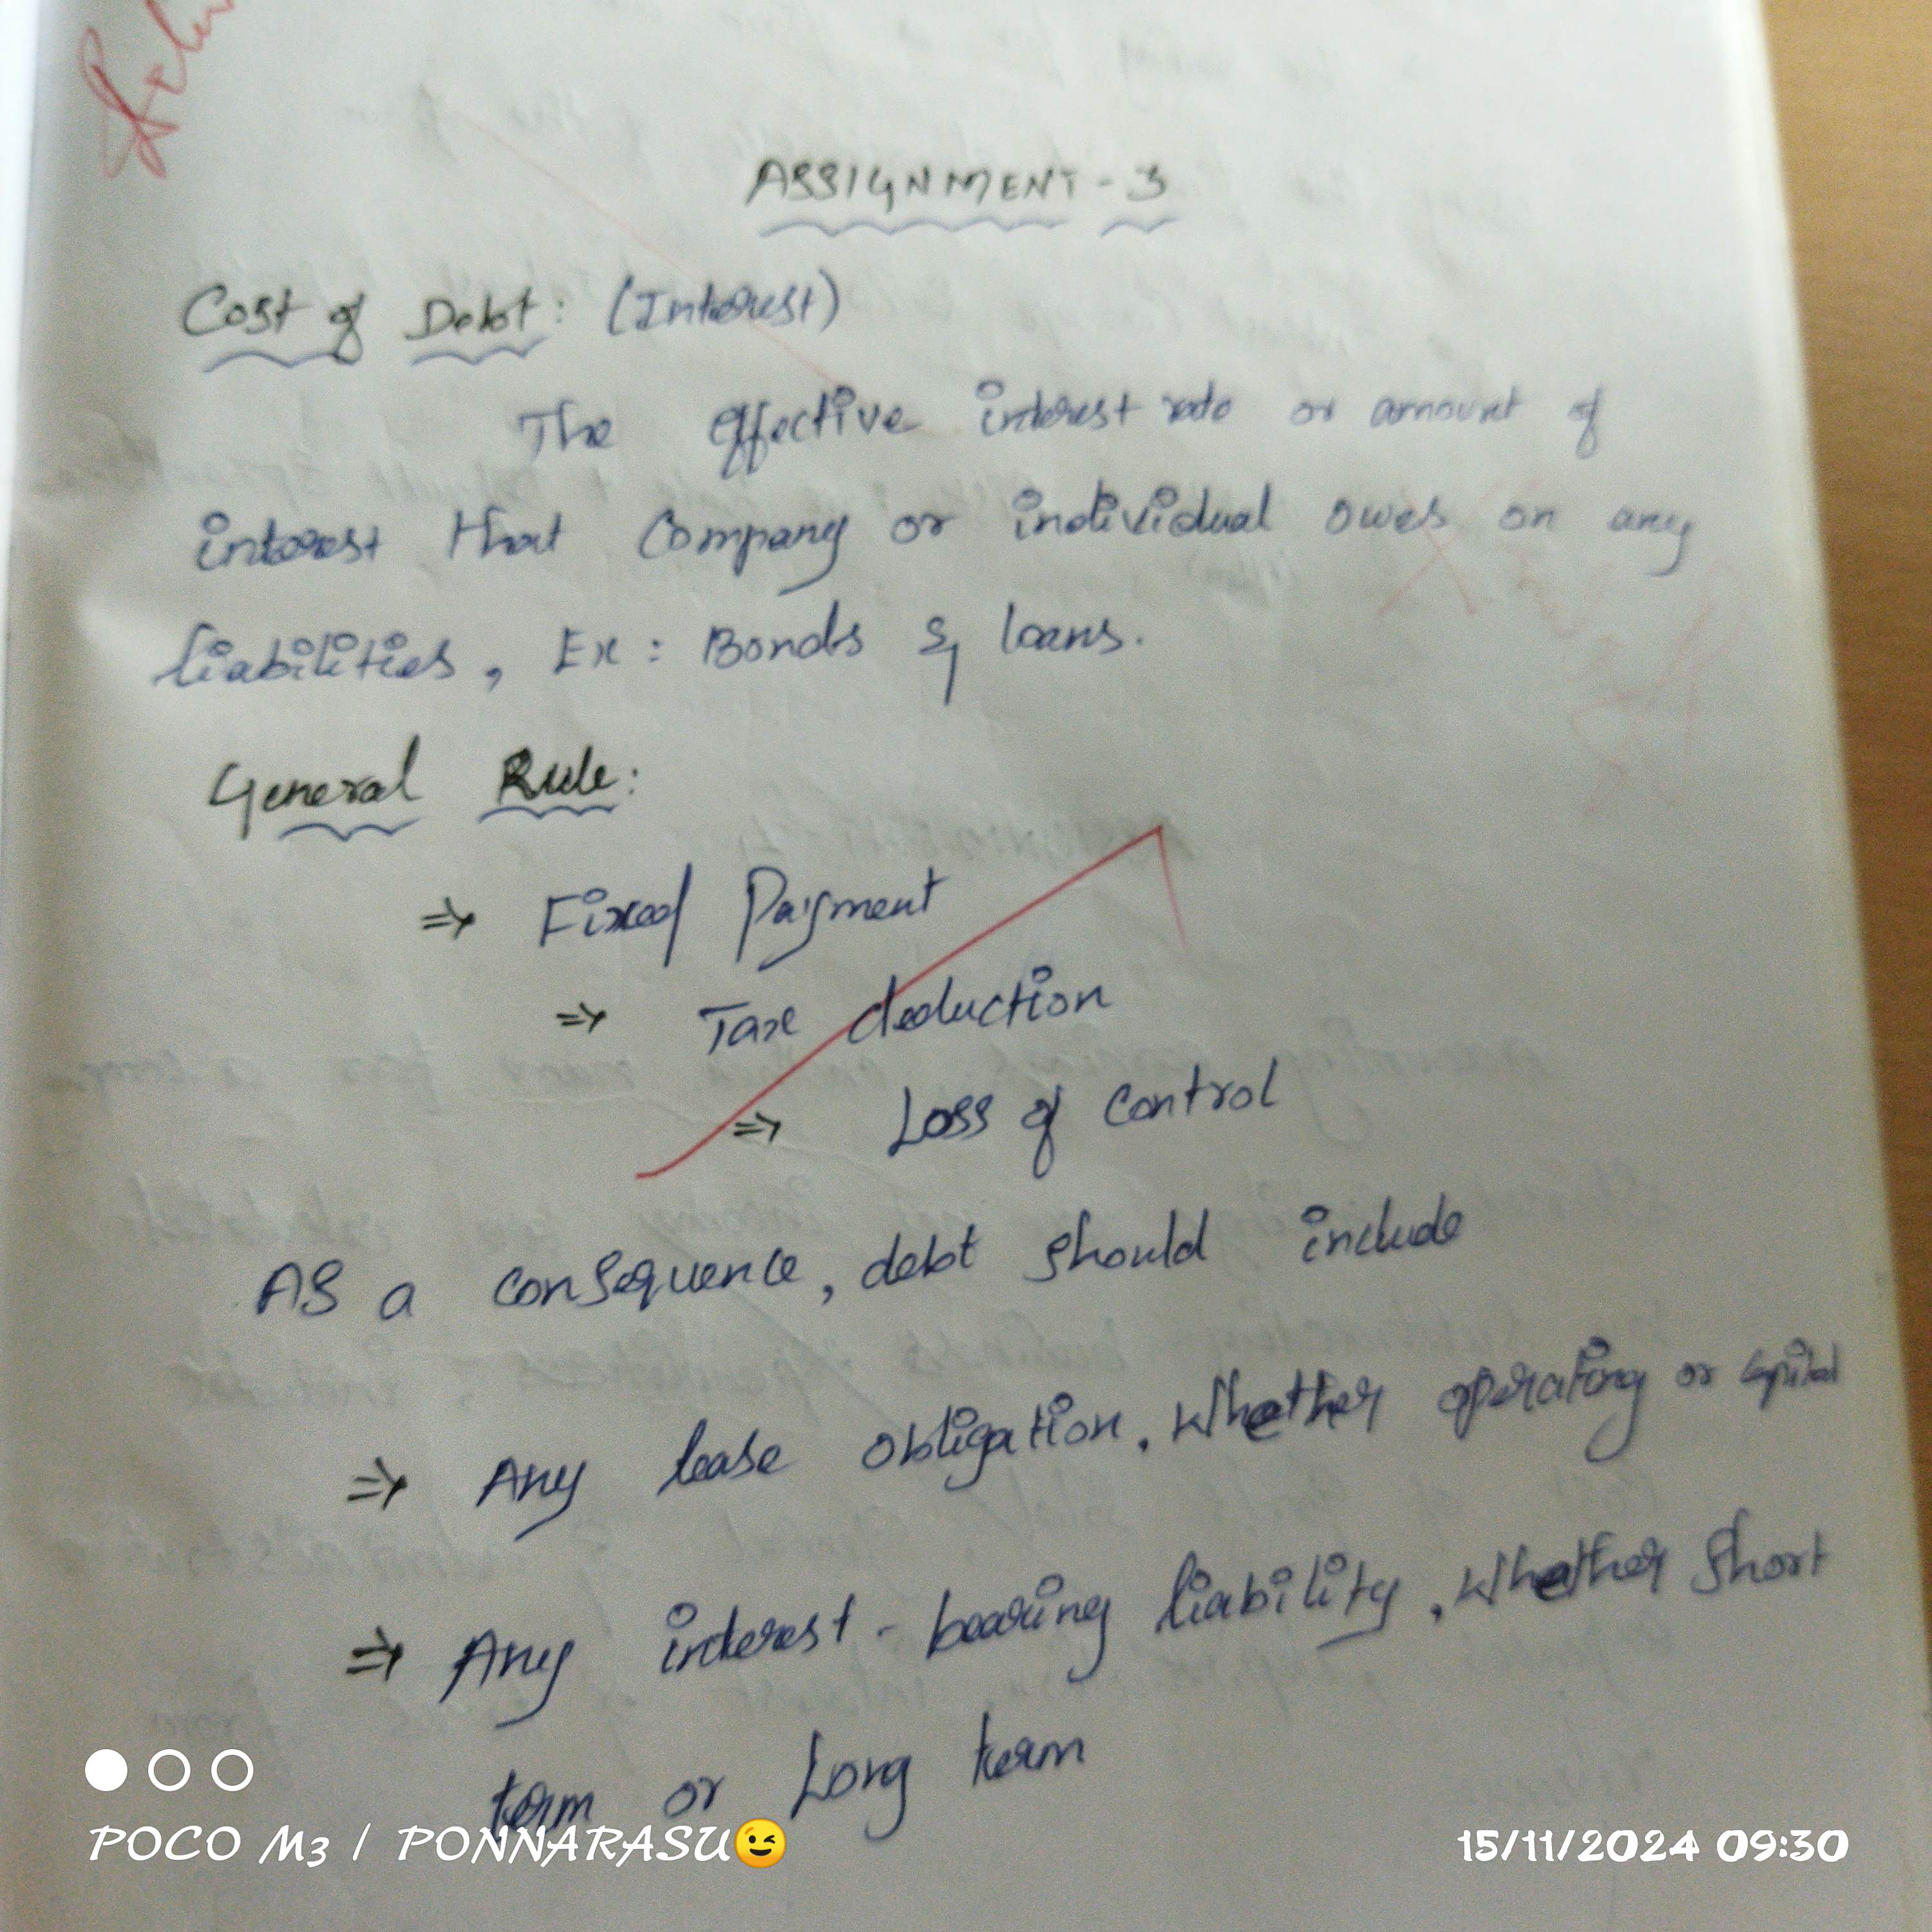 ASSIGNMENT - 3
Cost of Debt: (Interest)
The effective interest rate or amount of
interest that Company or individual owes on any
liabilities, Ex: Bonds & loans.
General Rule:
⇒ Fixed Payment
⇒ Tax deduction
⇒ Loss of control
As a consequence, debt should include
⇒ Any lease obligation, whether operating or capital
⇒ Any interest-bearing liability, whether short
term or Long term
POCO M3 | PONNARASU😉
15/11/2024 09:30